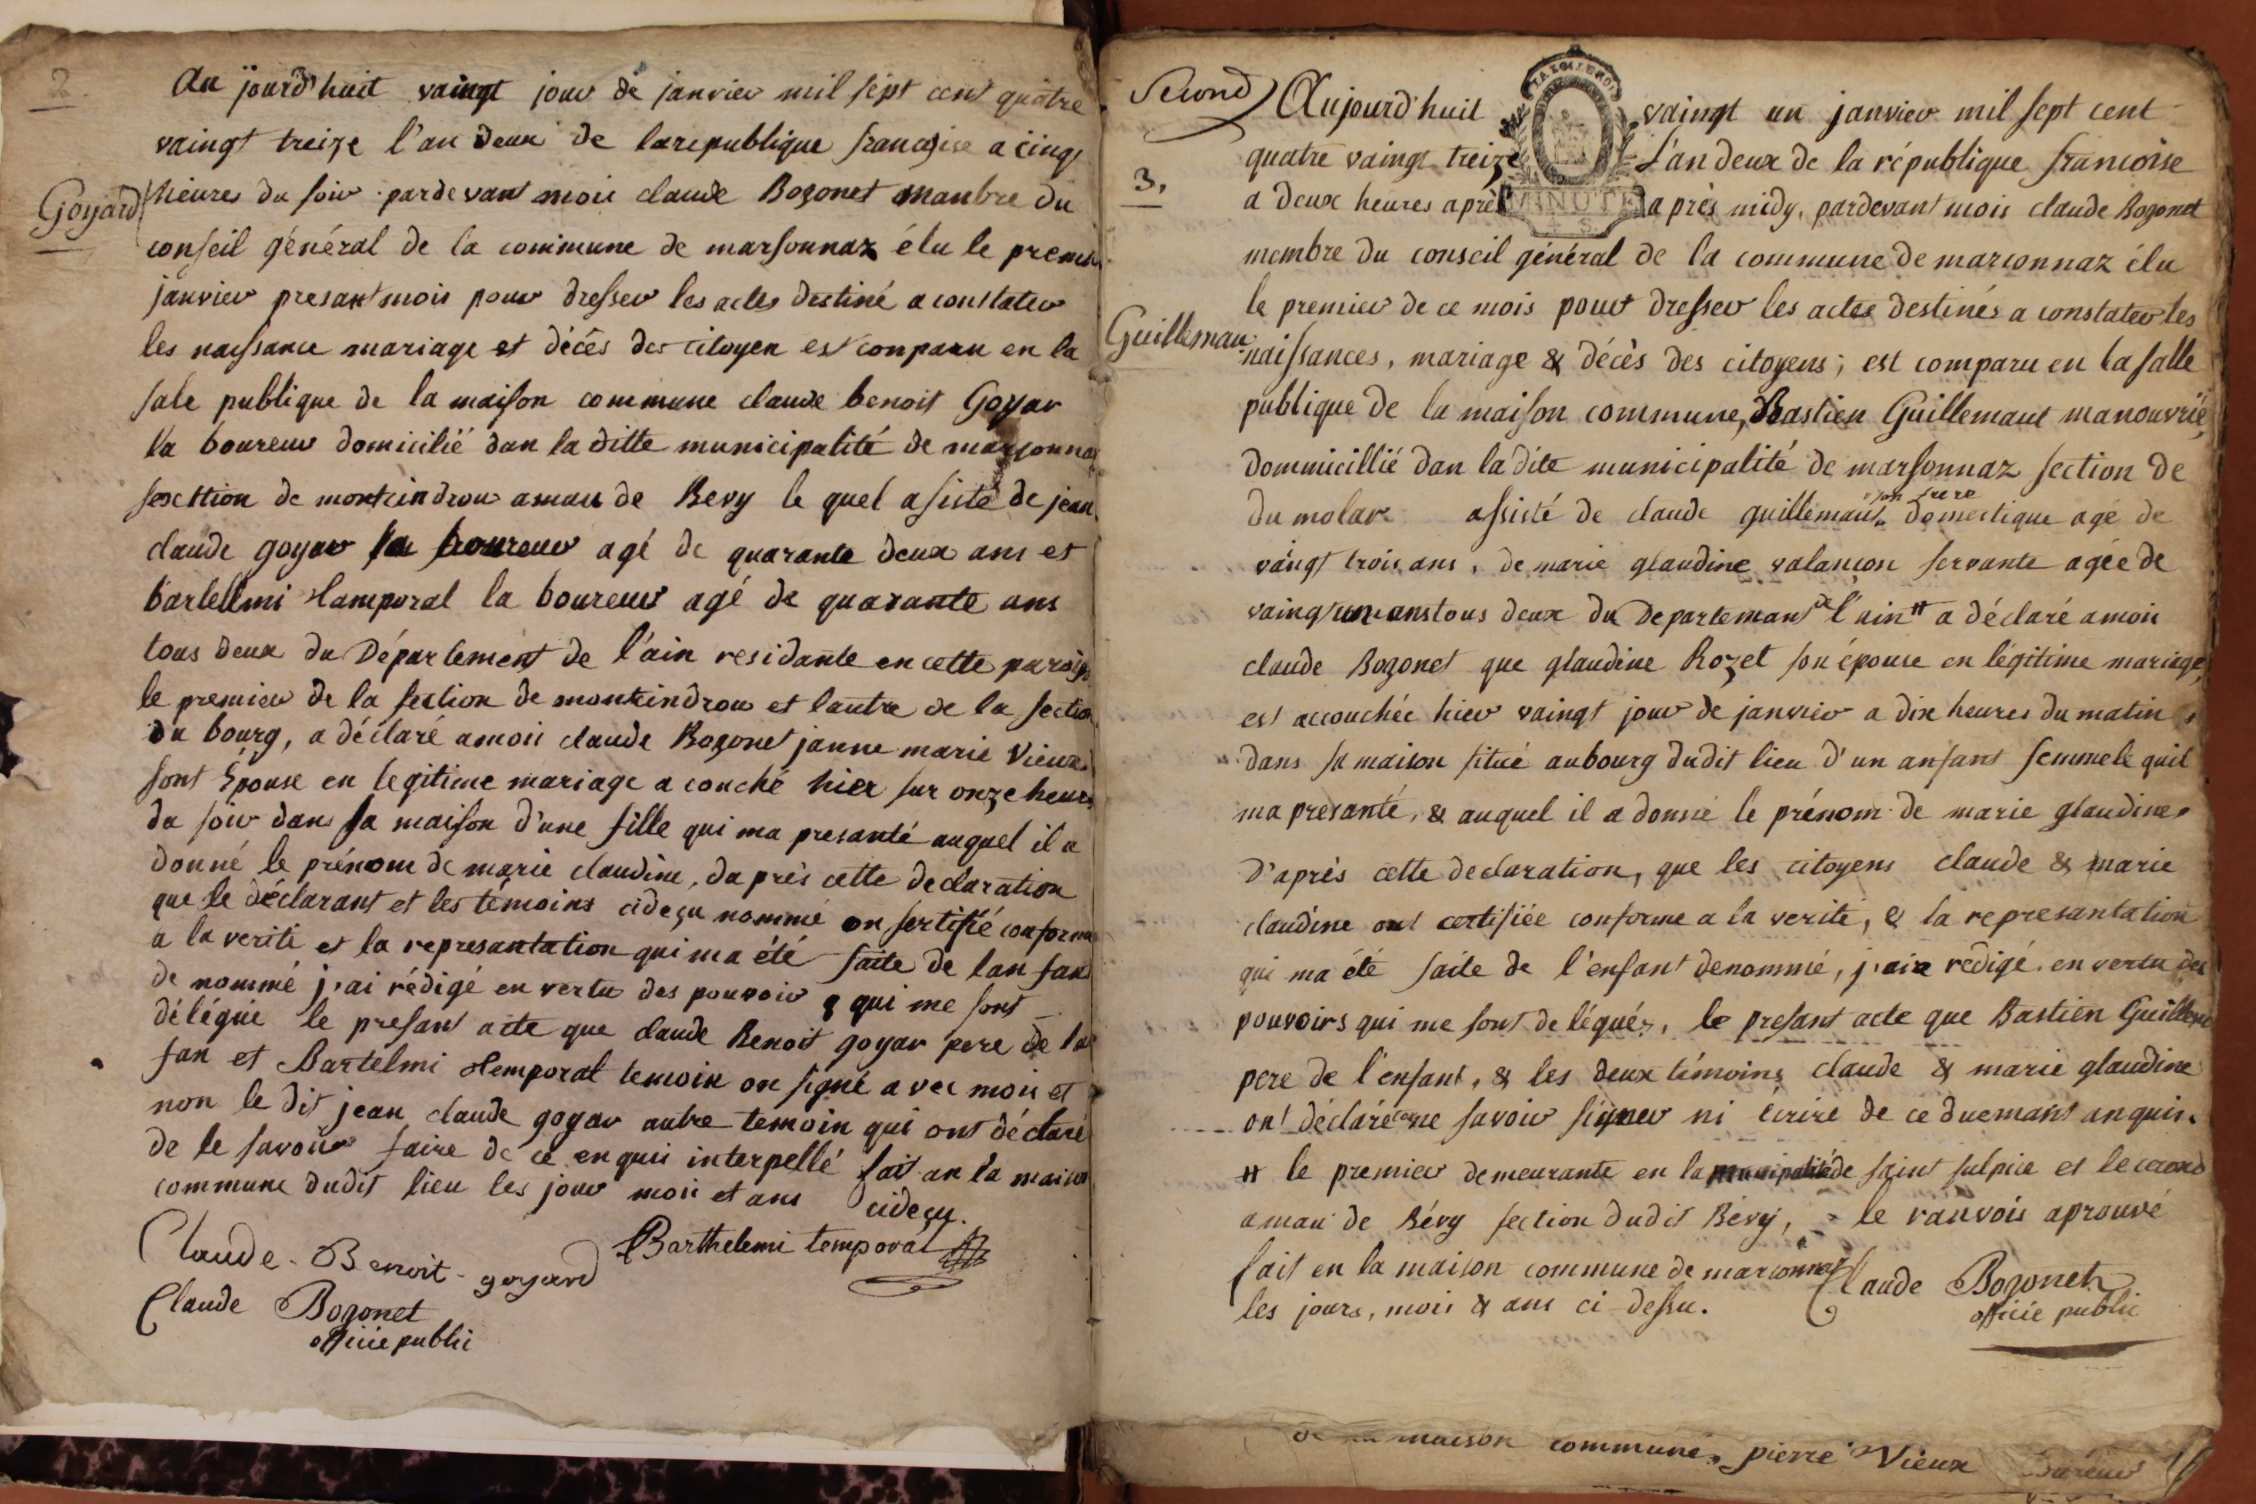 2.
Au jourd'huit vaingt jour de janvier mil sept cent quatre
vaingt treize l'an deux de larepublique francoise a cinq
Goyard
heures du soir pardevant mois claude Bozonet manbre du
conseil général de la commune de marsonnaz élu le premier
janvier presant mois pour dresser les actes destiné a constater
les naissance mariage et décês des citoyen est conparu en la
sale publique de la maison commune claude benoit Goyar
la boureur domicilié dan la ditte municipalité de marsonnaz
sexttion de monteindrou amau de Bevy le quel asisté de jean
claude goyar la boureur agé de quarante deux ans et
bartellmi Hamporal la boureur agé de quarante ans
tous deux du Département de l'ain residante en cette paroisse
le premier de la section de monteindrou et lautre de la section
du bourg, a déclaré amois claude Bozonet janne marie Vieux
sont Epouse en legitime mariage a couché hier sur onze heures
du soir dans sa maison d'une fille qui ma presanté auquel il a
donné le prénom de marie claudine, da près cette declaration
que le déclarant et les témoins cideçu nommé on sertifié conforme
a la verité et la represantation qui ma été faite de lan fan
de nommé j'ai rédigé en vertu des pouvoir qui me sont
délégué le presant acte que claude Benoit goyar pere de lan
fan et Bartelmi Hemporal temoin on signé a vec mois et
non le dit jean claude goyar autre temoin qui ont déclaré
de le savoir faire de ce en quis interpellé fait an la maison
commune dudit lieu les jour mois et ans cideçu.
Claude Benoit goyard
Barthelemi temporal
Claude Bozonet
officie public
Second
Aujourd'huit vaingt un janvier mil sept cent
quatre vaingt treize L'an deux de la république francoise
3.
MINUTE
a deux heures après a près midy, pardevant mois claude Bozonet
membre du conseil général de la commune de marconnaz élu
le premier de ce mois pour dresser les actes destinés a constater les
Guillemau
naissances, mariage & décès des citoyens; est comparu en la salle
publique de la maison commune, Bastien Guillemaut manouvrié,
Dommicillié dan la dite municipalité de marsonnaz section de
du molar assisté de claude guillemaut son frere domestique agé de
vaingt trois ans, de marie glaudine valançon servante agée de
vaingt un ans tous deux du Departemant de l'ain # a déclaré amois
claude Bozonet que glaudine Rozet son épouse en légitime mariage,
est accouchée hier vaingt jour de janvier a dix heures du matin
dans sa maison situé aubourg dudit lieu d'un anfant femmele quil
ma presanté, & auquel il a donné le prénom de marie glaudine
D'après cette declaration, que les citoyens claude & marie
claudine ont certifiée conforme a la verité, & la represantation
qui ma été faite de l'enfant denommé, j'aix rédigé en vertu des
pouvoirs qui me sont delégués, le presant acte que Bastien Guillema
pere de l'enfant, & les deux témoins claude & marie glaudine
ont déclaré ne savoir signer ni écrire de ce duemant anquis
# le premier demeurante en la municipalité de saint sulpice et le ceond
amau de Bévy section dudit Bévy, le ranvois aprouvé
fait en la maison commune de marconnaz
les jours, mois & ans ci dessu.
Claude Bozonet
officie public
maison commune, pierre Vieux